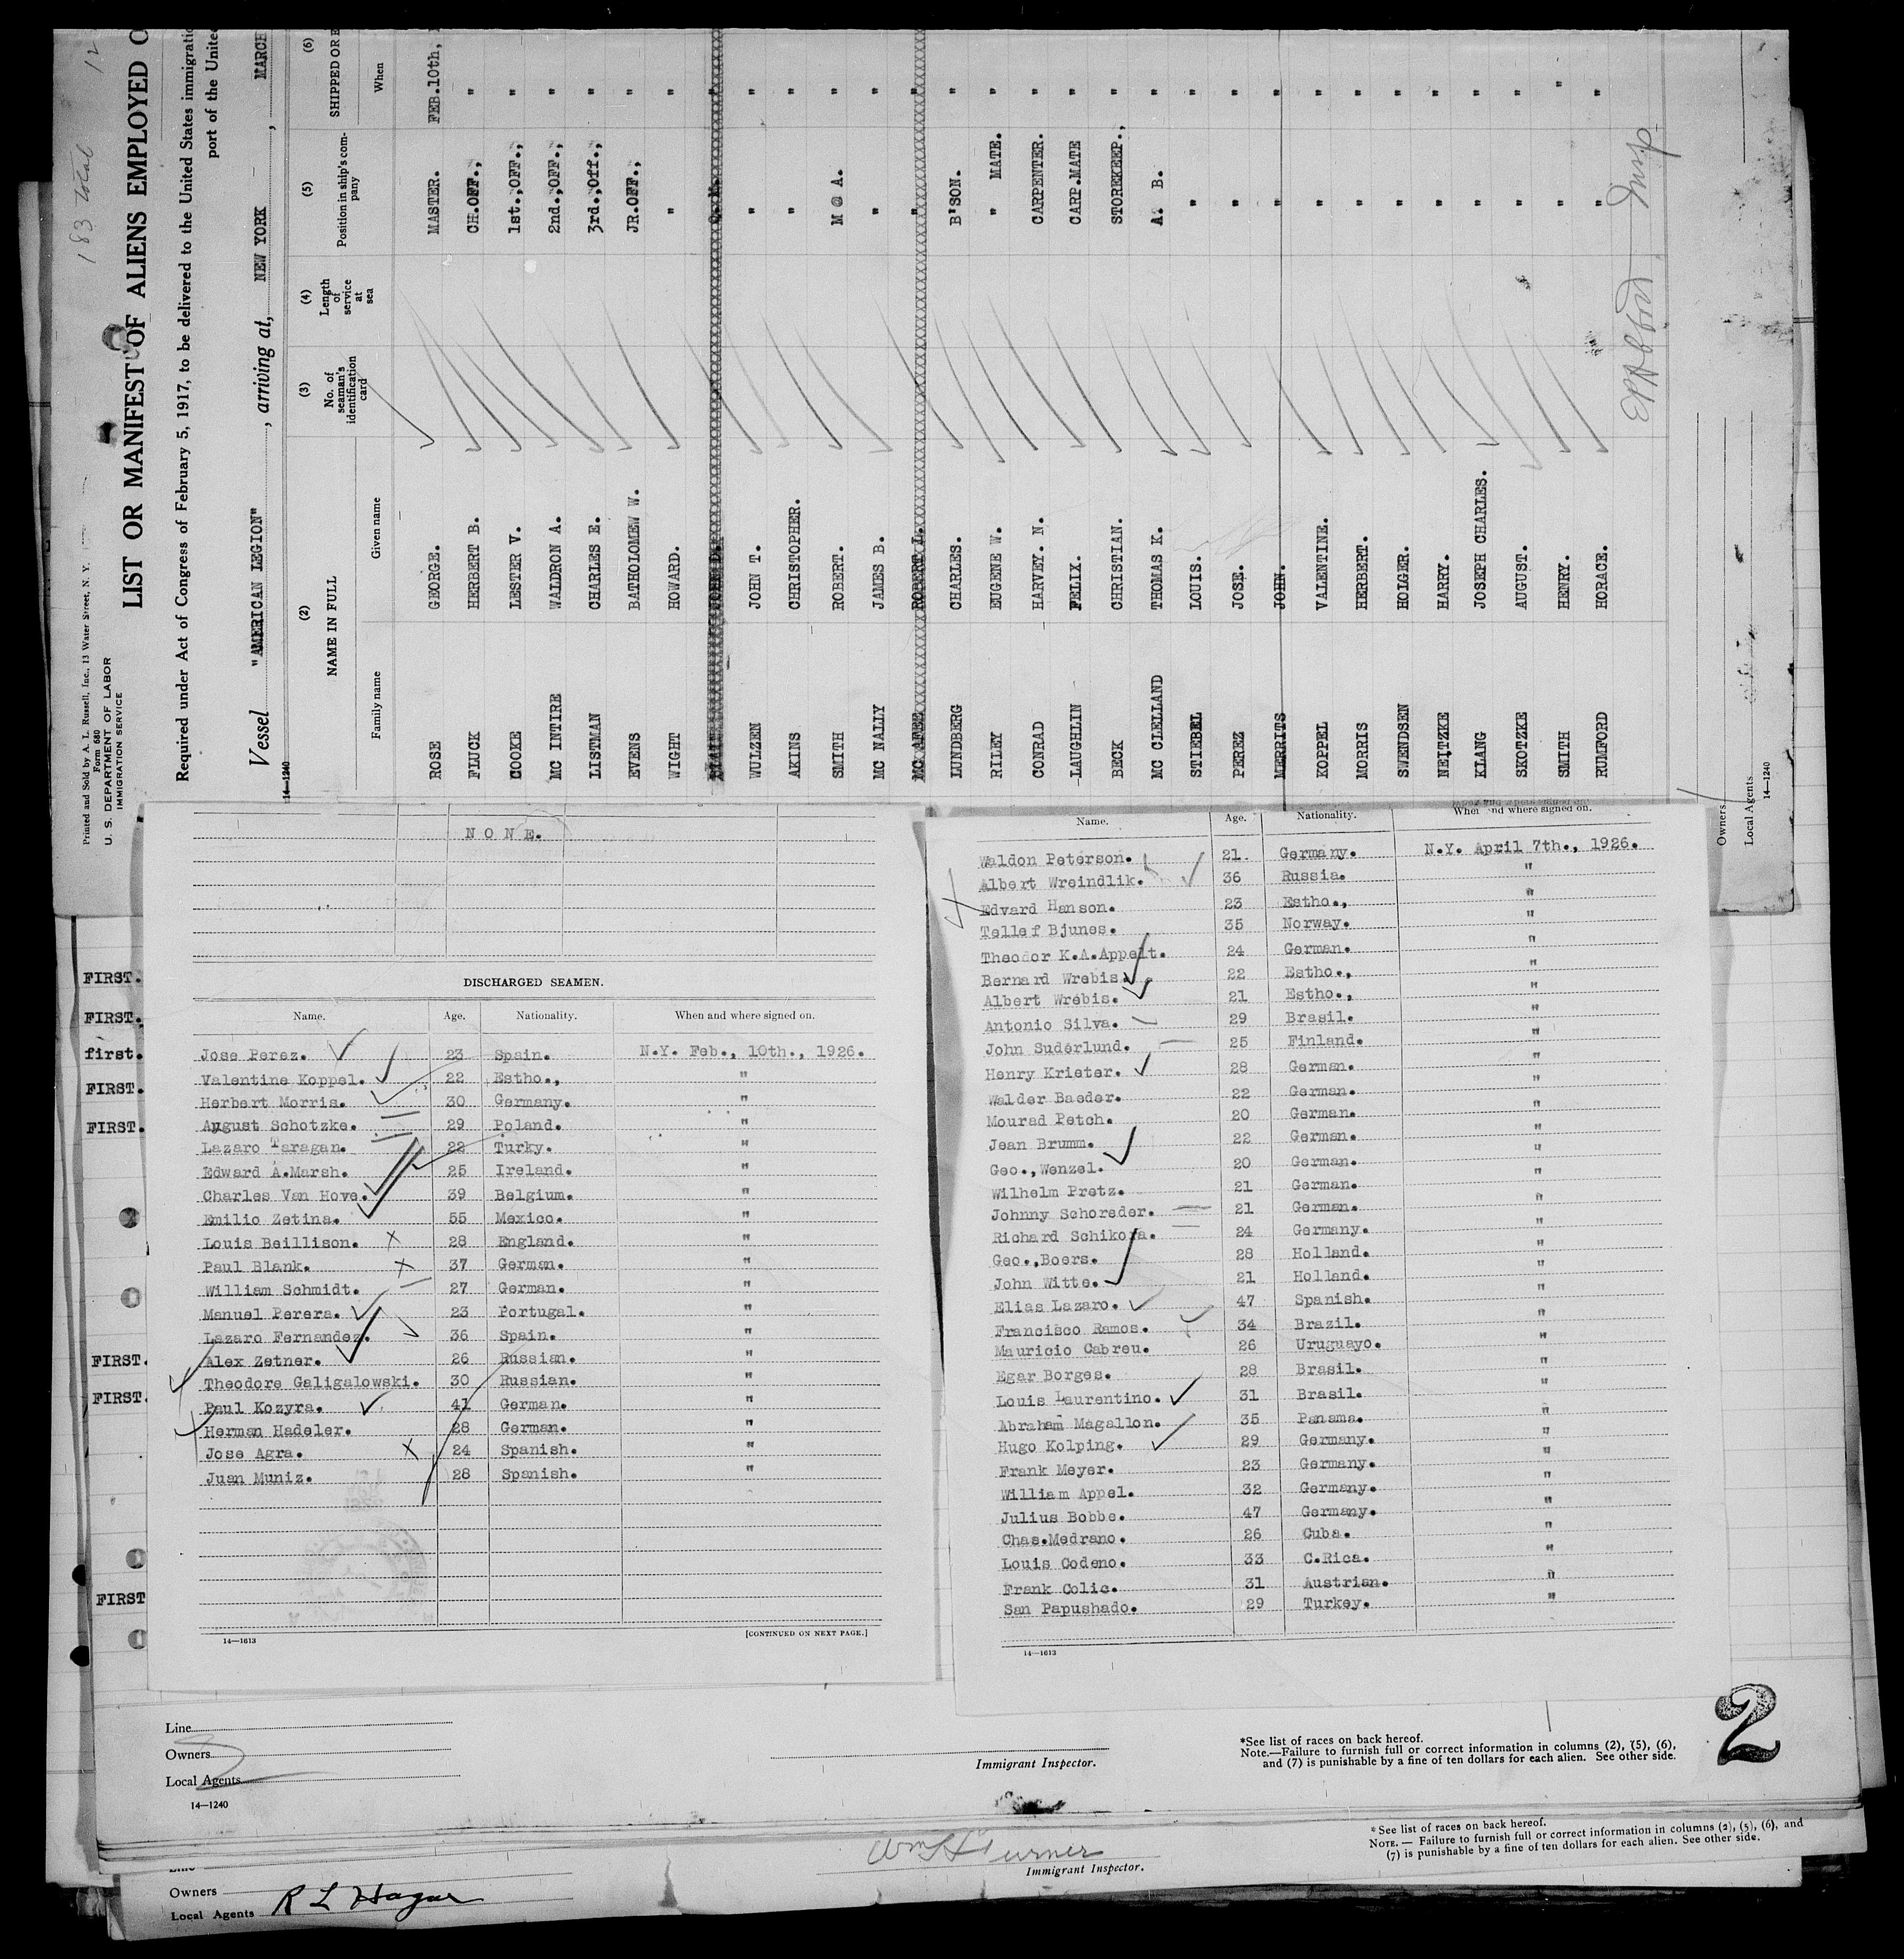 183 total
Printed and Sold by A. L. Russell, Inc., 13 Water Street, N. Y.
Form 680
U. S. DEPARTMENT OF LABOR
IMMIGRATION SERVICE
LIST OR MANIFEST OF ALIENS EMPLOYED O
Required under Act of Congress of February 5, 1917, to be delivered to the United States immigratio
port of the United
Vessel "AMERICAN LEGION", arriving at, NEW YORK, MARCH
14—1240
(2) (3) (4) (5) (6)
NAME IN FULL No. of seaman's identification card Length of service at sea Position in ship's company SHIPPED OR E
Family name Given name When
ROSE GEORGE. MASTER. FEB.10th,
FLUCK HERBERT B. CH.OFF., "
COOKE LESTER V. 1st.,OFF., "
MC INTIRE WALDRON A. 2nd.,OFF., "
LISTMAN CHARLES E. 3rd.,Off., "
EVENS BATHOLOMEW W. JR.OFF., "
WIGHT HOWARD. " "
WULZEN JOHN T. " "
AKINS CHRISTOPHER. " "
SMITH ROBERT. M @ A. "
MC NALLY JAMES B. " "
MC AFEE ROBERT L. " "
LUNDBERG CHARLES. B'SON. "
RILEY EUGENE W. " MATE. "
CONRAD HARVEY. N. CARPENTER. "
LAUGHLIN FELIX. CARP.MATE "
BECK CHRISTIAN. STOREKEEP., "
MC CLELLAND THOMAS K. A. B. "
STIEBEL LOUIS. " "
PEREZ JOSE. " "
MERRITS JOHN. " "
KOPPEL VALENTINE. " "
MORRIS HERBERT. " "
SWENDSEN HOLGER. " "
NEITZKE HARRY. " "
KLANG JOSEPH CHARLES. " "
SKOTZKE AUGUST. " "
SMITH HENRY. " "
RUMFORD HORACE. " "
Owners
Local Agents
14—1240
FIRST.
FIRST.
first.
FIRST.
FIRST.
FIRST.
FIRST.
FIRST
N O N E.
DISCHARGED SEAMEN.
Name. Age. Nationality. When and where signed on.
Jose Perez. 23 Spain. N.Y. Feb., 10th., 1926.
Valentine Koppel. 22 Estho., "
Herbert Morris. 30 Germany. "
August Schotzke. 29 Poland. "
Lazaro Taragan. 22 Turky. "
Edward A.Marsh. 25 Ireland. "
Charles Van Hove. 39 Belgium. "
Emilio Zetina. 55 Mexico. "
Louis Beillison. 28 England. "
Paul Blank. 37 German. "
William Schmidt. 27 German. "
Manuel Perera. 23 Portugal. "
Lazaro Fernandez. 36 Spain. "
Alex Zetner. 26 Russian. "
Theodore Galigalowski. 30 Russian. "
Paul Kozyra. 41 German. "
Herman Hadeler. 28 German. "
Jose Agra. 24 Spanish. "
Juan Muniz. 28 Spanish. "
14—1613 [CONTINUED ON NEXT PAGE.]
Name. Age. Nationality. When and where signed on.
Waldon Peterson. 21. Germany. N.Y. April 7th., 1926.
Albert Wreindlik. 36 Russia. "
Edvard Hanson. 23 Estho., "
Tellef Bjunes. 35 Norway. "
Theodor K.A.Appelt. 24 German. "
Bernard Wrebis. 22 Estho., "
Albert Wrebis. 21 Estho., "
Antonio Silva. 29 Brasil. "
John Suderlund. 25 Finland. "
Henry Krieter. 28 German. "
Walder Baeder. 22 German. "
Mourad Petch. 20 German. "
Jean Brumm. 22 German. "
Geo.,Wenzel. 20 German. "
Wilhelm Pretz. 21 German. "
Johnny Schoreder. 21 German. "
Richard Schikora. 24 Germany. "
Geo.,Boers. 28 Holland. "
John Witte. 21 Holland. "
Elias Lazaro. 47 Spanish. "
Francisco Ramos. 34 Brazil. "
Mauricio Cabreu. 26 Uruguayo. "
Egar Borges. 28 Brasil. "
Louis Laurentino. 31 Brasil. "
Abraham Magallon. 35 Panama. "
Hugo Kolping. 29 Germany. "
Frank Meyer. 23 Germany. "
William Appel. 32 Germany. "
Julius Bobbe. 47 Germany. "
Chas.Medrano. 26 Cuba. "
Louis Codeno. 33 C.Rica. "
Frank Colic. 31 Austrian. "
San Papushado. 29 Turkey. "
14—1613
Line
Owners
Local Agents
14—1240
Immigrant Inspector.
*See list of races on back hereof.
Note.—Failure to furnish full or correct information in columns (2), (5), (6),
and (7) is punishable by a fine of ten dollars for each alien. See other side.
2
Owners
Local Agents R L Hagar
Wm H Turner
Immigrant Inspector.
* See list of races on back hereof.
NOTE. — Failure to furnish full or correct information in columns (2), (5), (6), and
(7) is punishable by a fine of ten dollars for each alien. See other side.